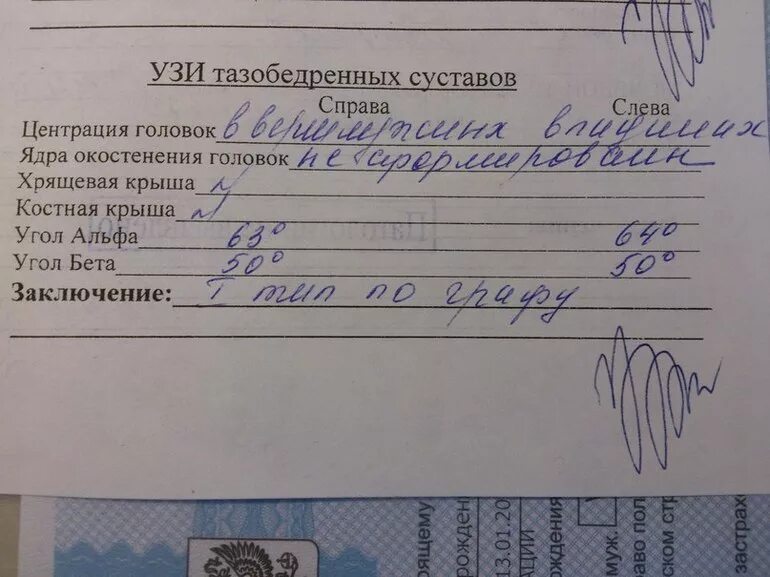 УЗИ тазобедренных суставов
Справа Слева
Центрация головок в вертлужных впадинах
Ядра окостенения головок не сформирован
Хрящевая крыша N
Костная крыша N
Угол Альфа 63° 64°
Угол Бета 50° 50°
Заключение: I тип по графу
рящему
рожден
13.01.20
АЦИИ
ождения
муж.
аво пол
ском стр
застрахо